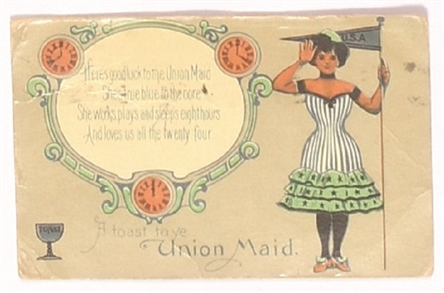 Here's good luck to the Union Maid
She's true blue to the core
She works plays and sleeps eight hours
And loves us all the twenty four
U.S.A
A toast to ye
Union Maid.